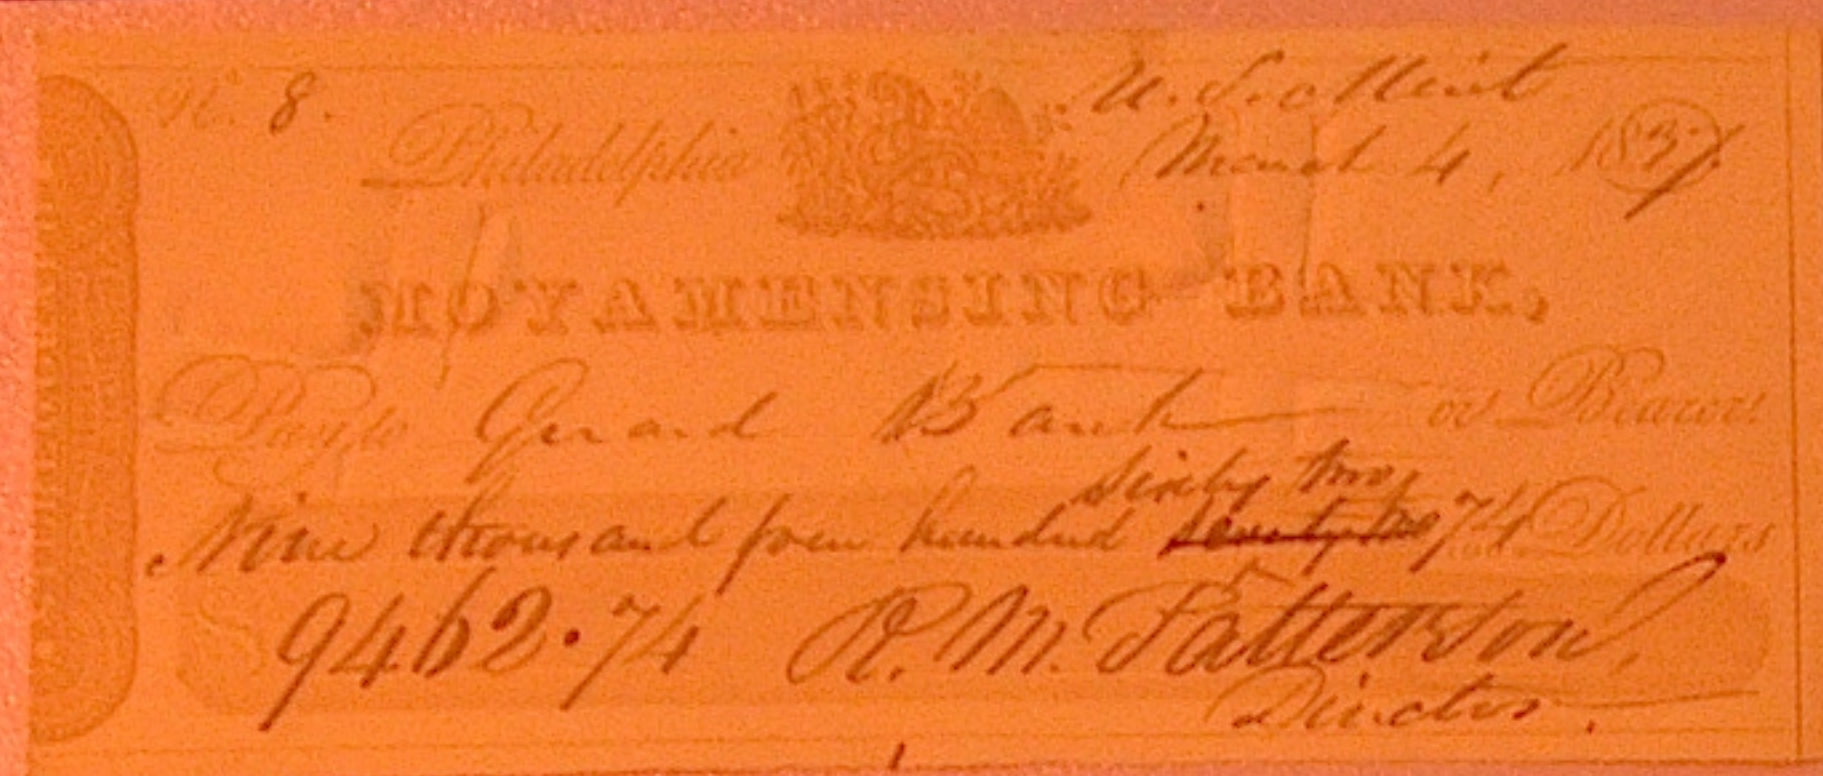 No. 8.
U. S. Mint
Philadelphia March 4, 1837
MOYAMENSING BANK,
Pay to Girard Bank or Bearer
sixty two
Nine thousand four hundred seventy two 74 Dollars
9462.74 R. M. Patterson,
Director.